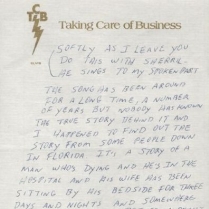 TCB
Taking Care of Business
SOFTLY AS I LEAVE YOU
DO THIS WITH SHERRIL
HE SINGS TO MY SPOKEN PART
THE SONG HAS BEEN AROUND
FOR A LONG TIME, A NUMBER
OF YEARS BUT NOBODY HAS KNOWN
THE TRUE STORY BEHIND IT AND
I HAPPENED TO FIND OUT THE
STORY FROM SOME PEOPLE DOWN
IN FLORIDA IT'S A STORY OF A
MAN WHO'S DYING AND HE'S IN THE
HOSPITAL AND HIS WIFE HAS BEEN
SITTING BY HIS BEDSIDE FOR THREE
DAYS AND NIGHTS AND SOMEWHERE